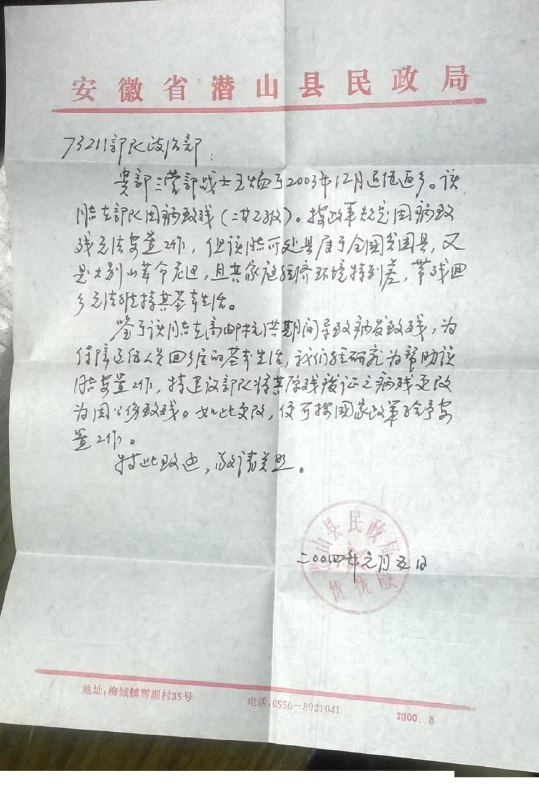 安徽省潜山县民政局
73211部队政治部:
贵部三营部战士王灿于2003年12月退伍返乡。该
同志在部队因病致残(二等乙级)。按政策规定因病致
残无法安置工作,但该同志所处县属于全国贫困县,又
是大别山革命老区,且其家庭经济环境特别差,带残回
乡无法维持其基本生活。
鉴于该同志在高邮抗洪期间导致病发致残,为
保障退伍人员回乡后的基本生活,我们经研究为帮助该
同志安置工作,特建议部队将其原残废证之病残更改
为因公伤致残。如此更改,便可按国家政策给予安
置工作。
特此致函,敬请关照。
潜山县民政局
二00四年元月五日
优抚股
地址:梅城镇雪湖村35号
电话:0556-8921041
2000.8